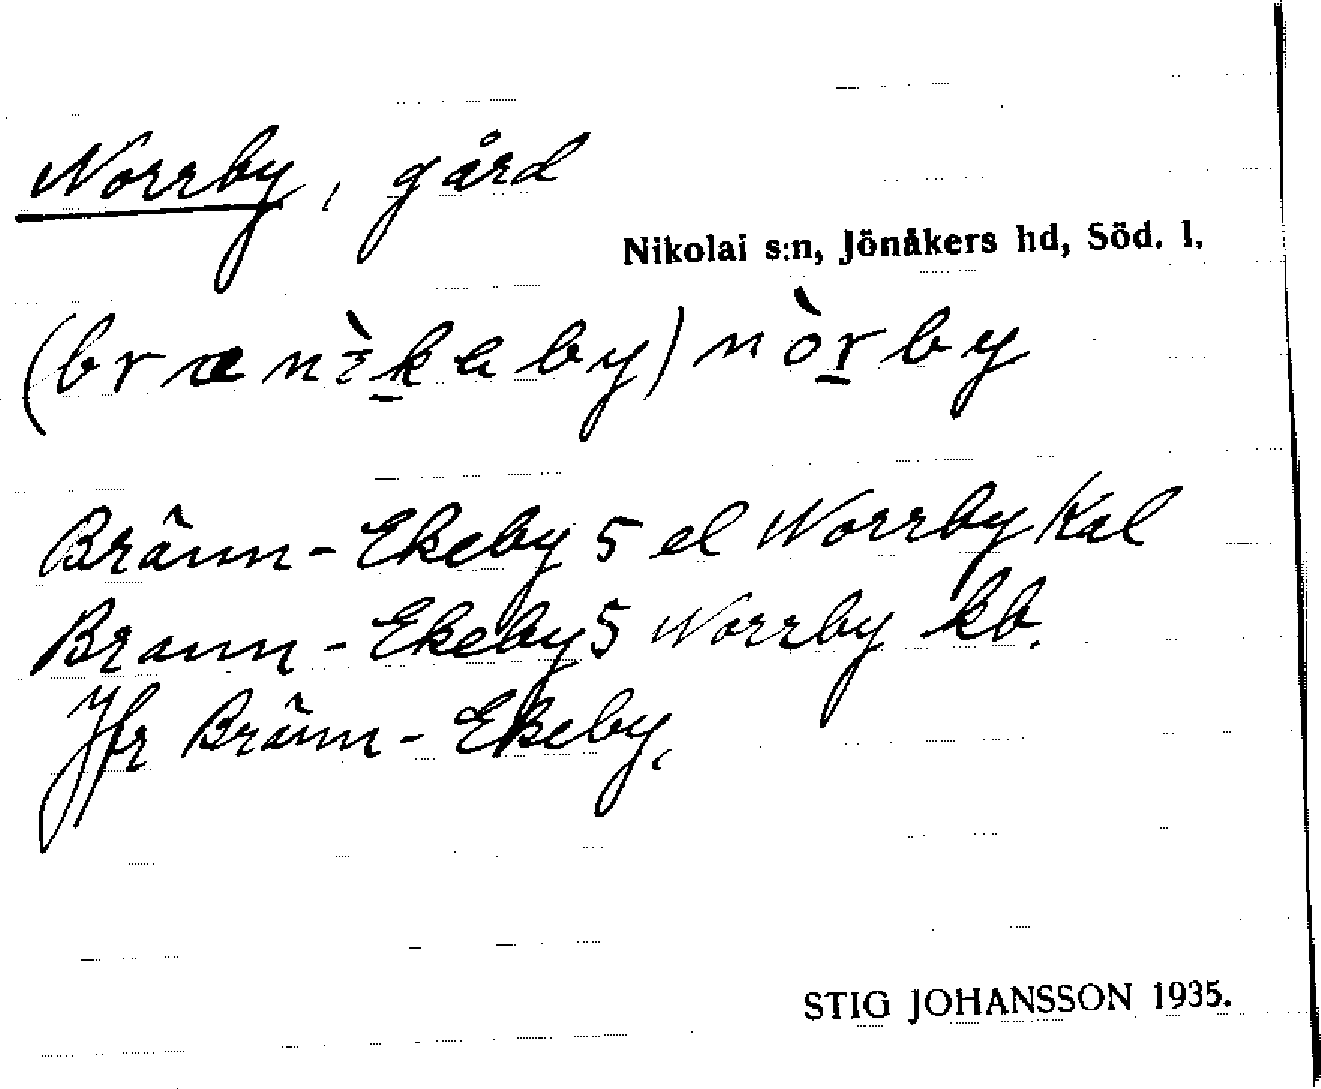 Norrby, gård
Nikolai s:n, Jönåkers hd, Söd. l.
nòrby
Bränn-Ekeby 5 el Norrby Kal
Brann-Ekeby 5 Norrby kb.
Jfr Bränn-Ekeby.
STIG JOHANSSON 1935.